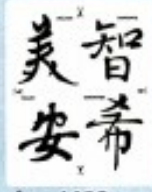 美智
安希